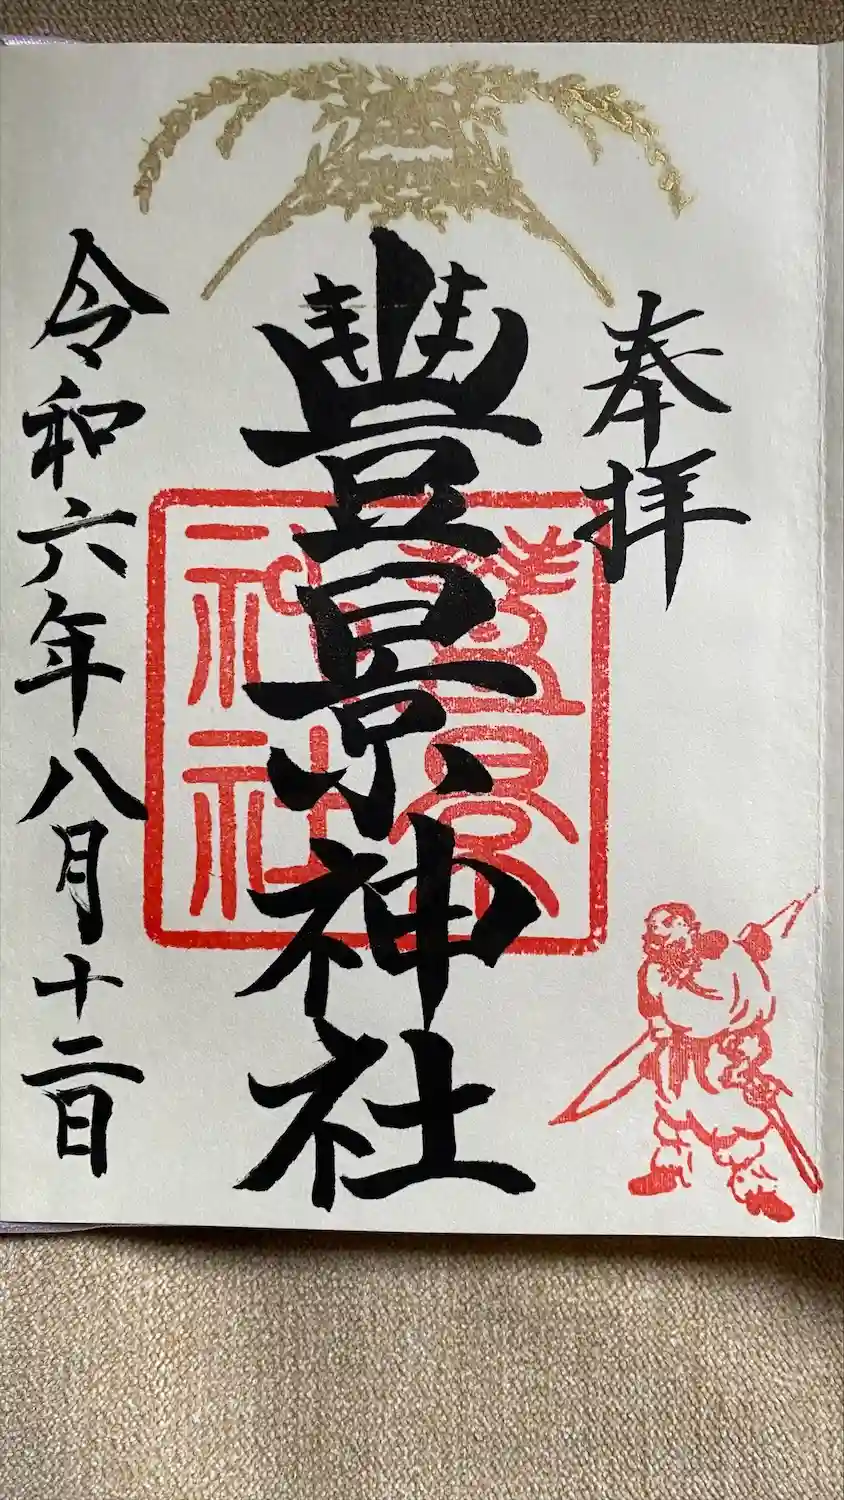 奉拝
豊景神社
豊景神社
令和六年八月十二日